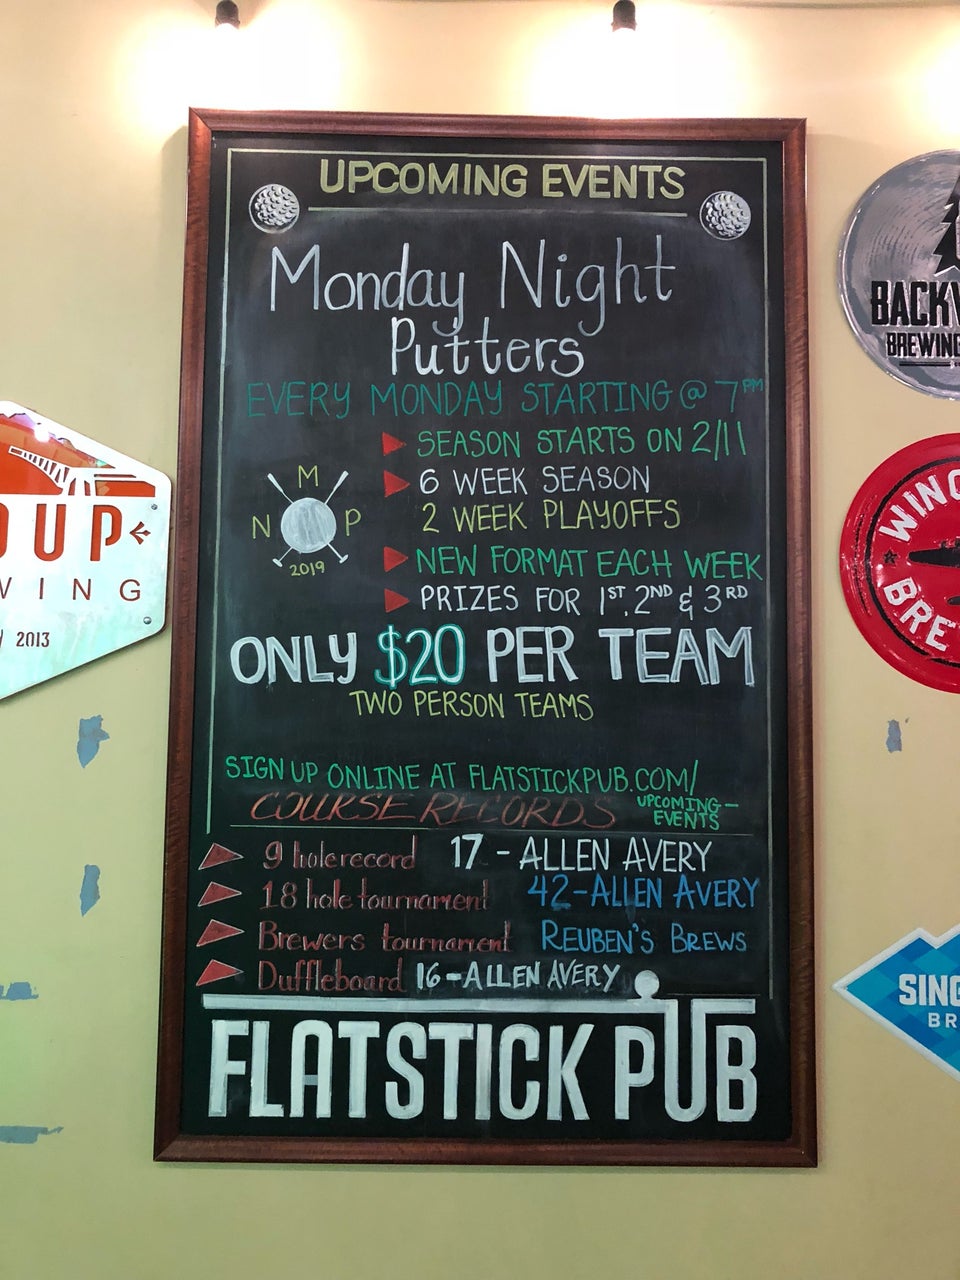 UPCOMING EVENTS
Monday Night
Putters
EVERY MONDAY STARTING @ 7PM
SEASON STARTS ON 2/11
6 WEEK SEASON
2 WEEK PLAYOFFS
NEW FORMAT EACH WEEK
PRIZES FOR 1ST, 2ND & 3RD
M
N P
2019
ONLY $20 PER TEAM
TWO PERSON TEAMS
SIGN UP ONLINE AT FLATSTICKPUB.COM/
UPCOMING-
EVENTS
COURSE RECORDS
9 hole record 17 - ALLEN AVERY
18 hole tournament 42-ALLEN AVERY
Brewers tournament REUBEN'S BREWS
Duffleboard 16-ALLEN AVERY
FLATSTICK PUB
OUP
WING
2013
BACK
BREWING
WING
BRE
SING
BR